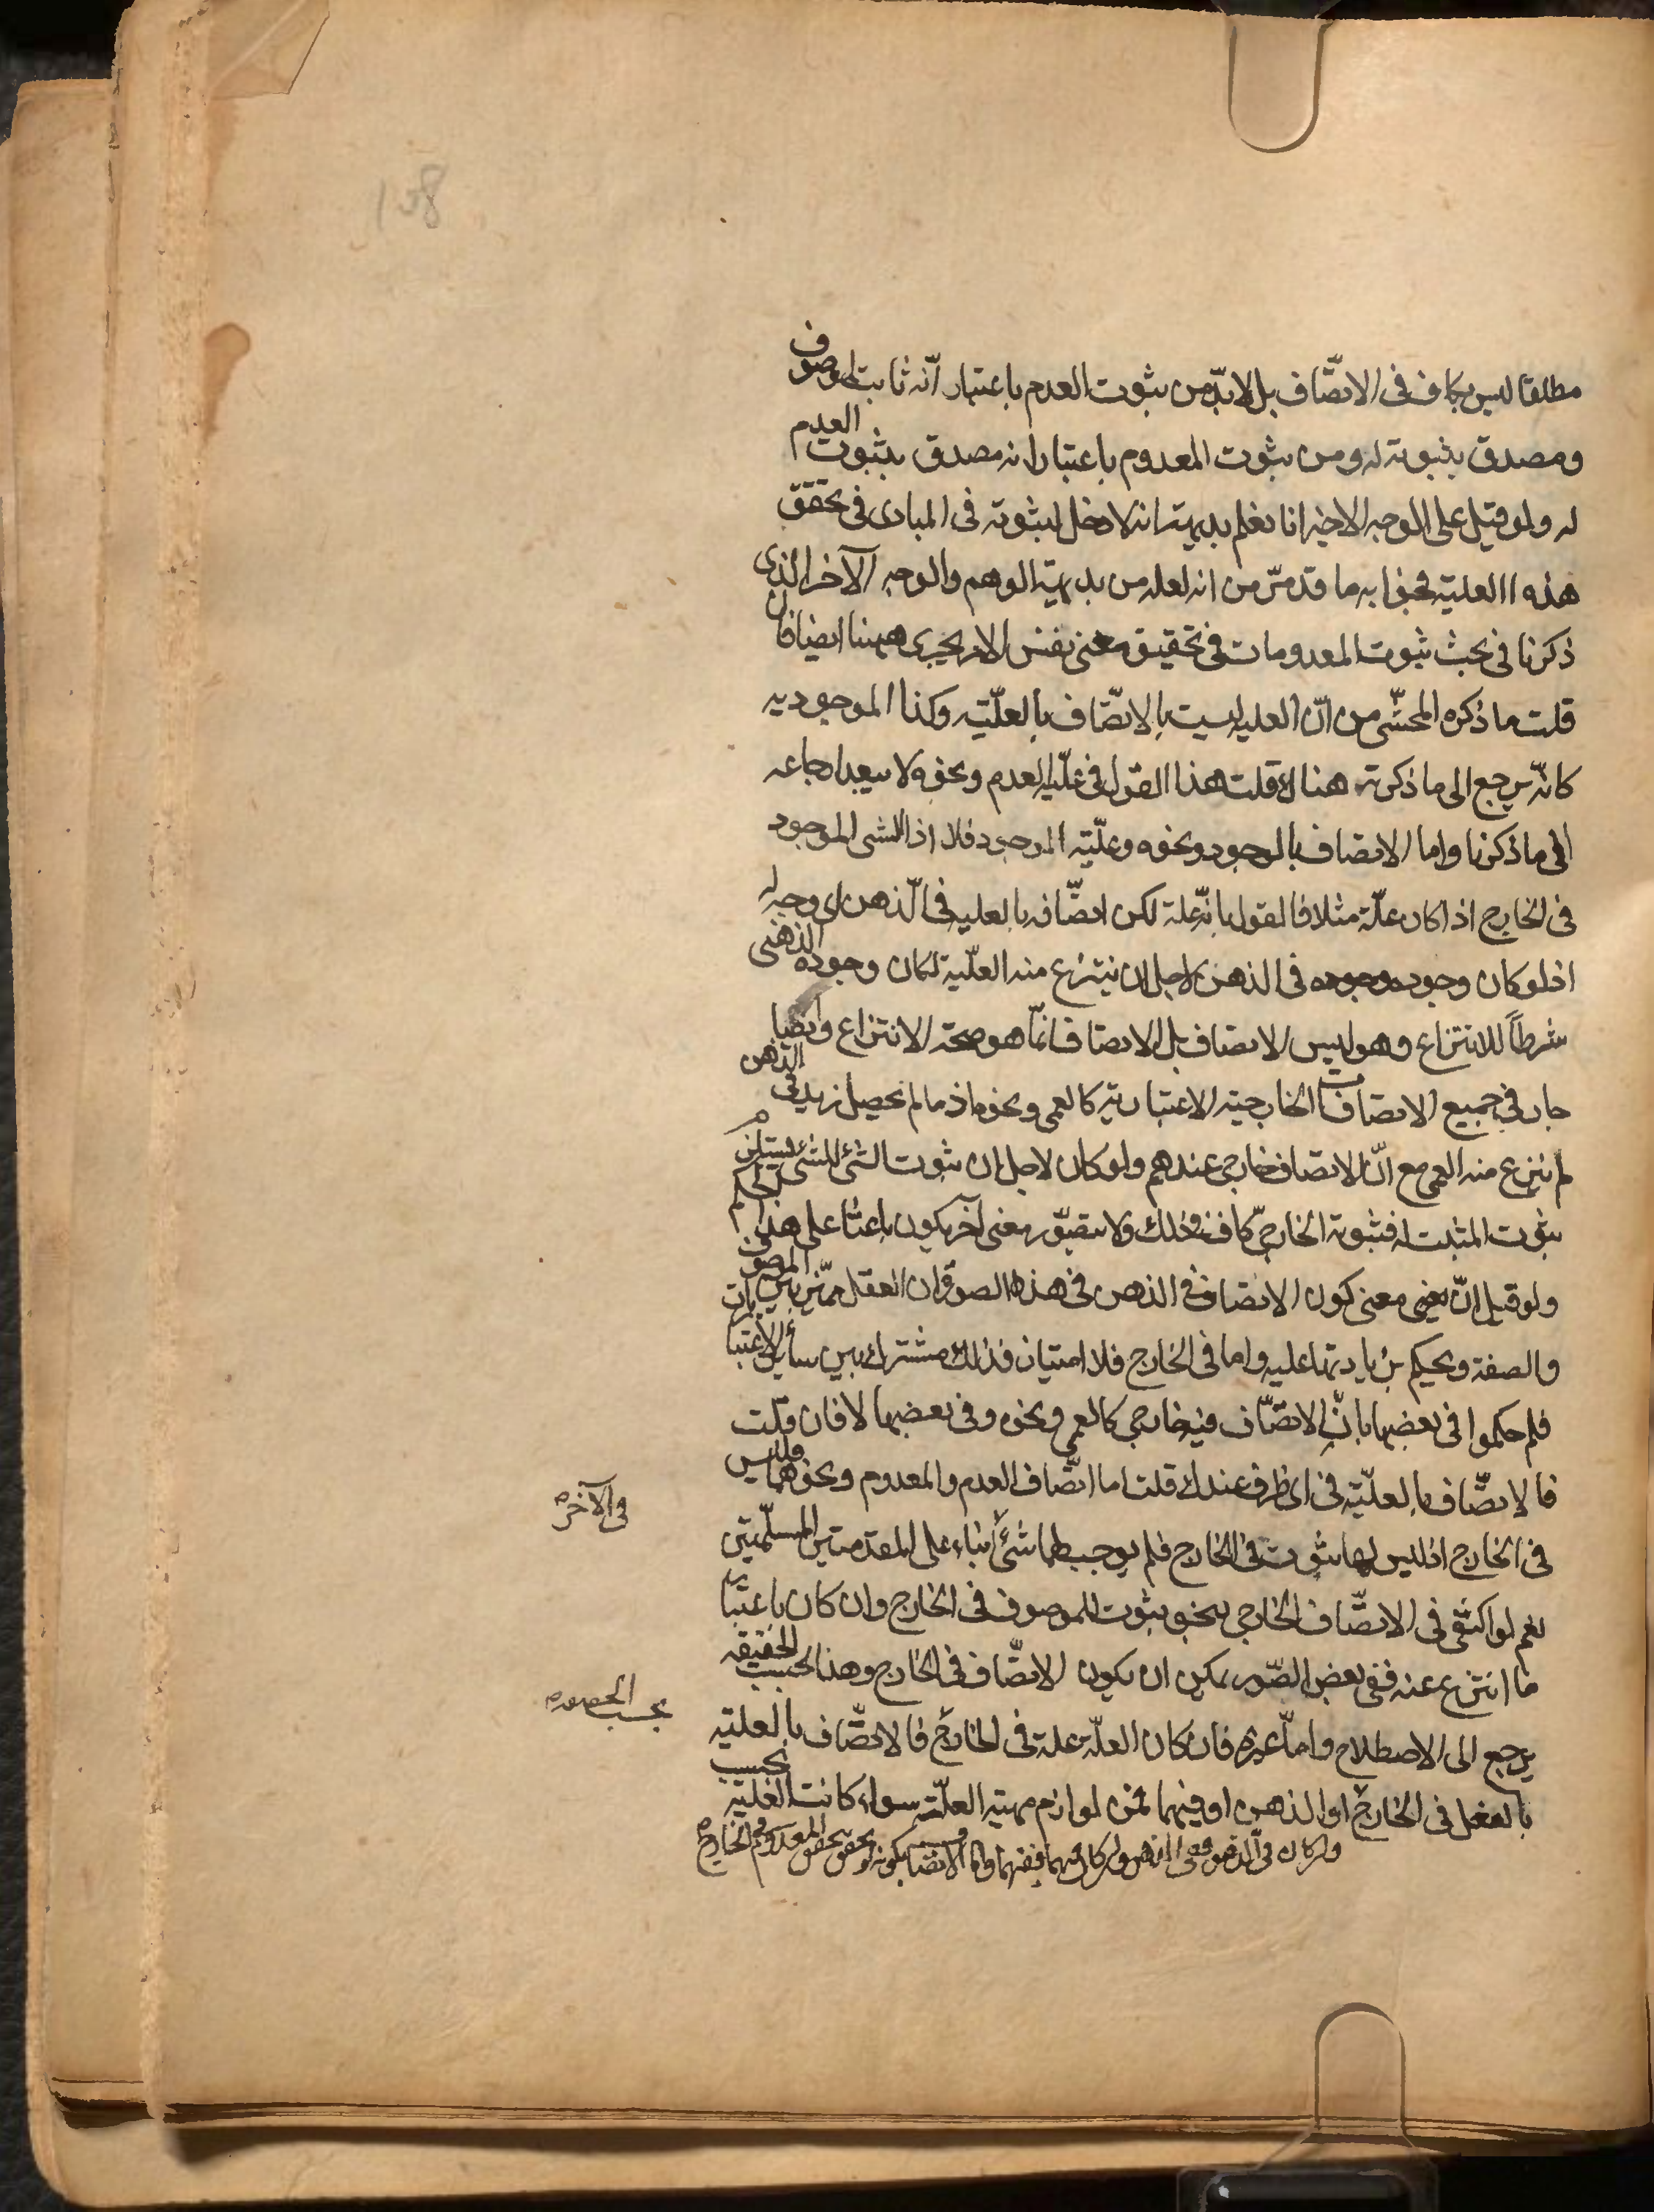 مطلقا ليس بكاف فى الاتصّاف بل لا بدّ من ثبوت العدم باعتبار انّه ثابت لموصوف
ومصدق بثبوته له ومن ثبوت المعدوم باعتبار انه مصدق بثبوت العدم
له ولو قيل على الوجه الاخير انا نعلم بديهة انه لا دخل لثبوته فى المبادى فى تحقق
هذه العلية فجوابه ما قد مرّ من انه لعله من بديهية الوهم والوجه الآخر الذى
ذكرنا فى بحث ثبوت المعدومات فى تحقيق معنى نفس الامر يجرى ههنا ايضا فان
قلت ما ذكره المحشّى من انّ العليه ليست بالاتصّاف بالعلّيّة وكذا الموجوديه
كانّه يرجع الى ما ذكرته هنا لا قلت هذا القول فى علّية العدم ونحوه لا يبعد ارجاعه
الى ما ذكرنا واما الاتصاف بالوجود ونحوه وعلّيّة الموجود فلا اذ الشى الموجود
فى الخارج اذا كان علّة مثلا فالقول بانّه علة لكن اتصّافه بالعليه فى الّذهن اى وجه له
اذ لو كان وجوده وجوده فى الذهن لاجل ان ينتزع منه العلّية لكان وجوده الذهنى
شرطاً للانتزاع وهو ليس الاتصاف بل الاتصاف انّما هو صحة الانتزاع وايضا
جار فى جميع الاتصافات الخارجية الاعتبارية كالعمى ونحوه اذ ما لم يحصل زيد فى الذهن
لم ينتزع منه العمى مع انّ الاتصاف خارجى عندهم ولو كان لاجل ان ثبوت الشئ للشئ يستلزم
ثبوت المثبت له فثبوته الخارجىّ كاف فى ذلك ولا يتصّور معنى آخر يكون باعثا على هذا الحكم
ولو قيل انّ يعنى معنى كون الاتصاف فى الذهن فى هذه الصورة ان العقل يميّز بين الموصوف
والصفة ويحكم بزيادتها عليه واما فى الخارج فلا امتياز فذلك مشترك بين سائر الاعتباريات
فلم حكموا فى بعضها بانّ الاتصّاف فيه خارجى كالعمى ونحوه وفى بعضها لا فان قلت
فالاتصّاف بالعلّيّة فى اى ظرف عندك قلت اما اتصّاف العدم والمعدوم ونحوهما فليس
فى الخارج اذ ليس لها ثبوت فى الخارج فلم يوجب لهما شئ بناء على المقدمتين المسلّمتين
نعم لو اكتفى فى الاتصّاف الخارجى بنحو ثبوت للموصوف فى الخارج وان كان باعتبار
ما انتزع عنه ففى بعض الصّور يمكن ان يكون الاتصّاف فى الخارج وهذا بحسب الحقيقه
يرجع الى الاصطلاح واما غيره فان كان العلّة علة فى الخارج فالاتصّاف بالعلية
بالفعل فى الخارج او الذهن او فيهما ثمّن لوازم مهية العلّة سواء كانت العليّة بحسب
وان كان فى الذهن ففى الذهن وان كان فيهما ففيهما واما الاتصاف بكونه لو تحقق تحقق المعلول فى الخارج
فى الآخره
بحسب